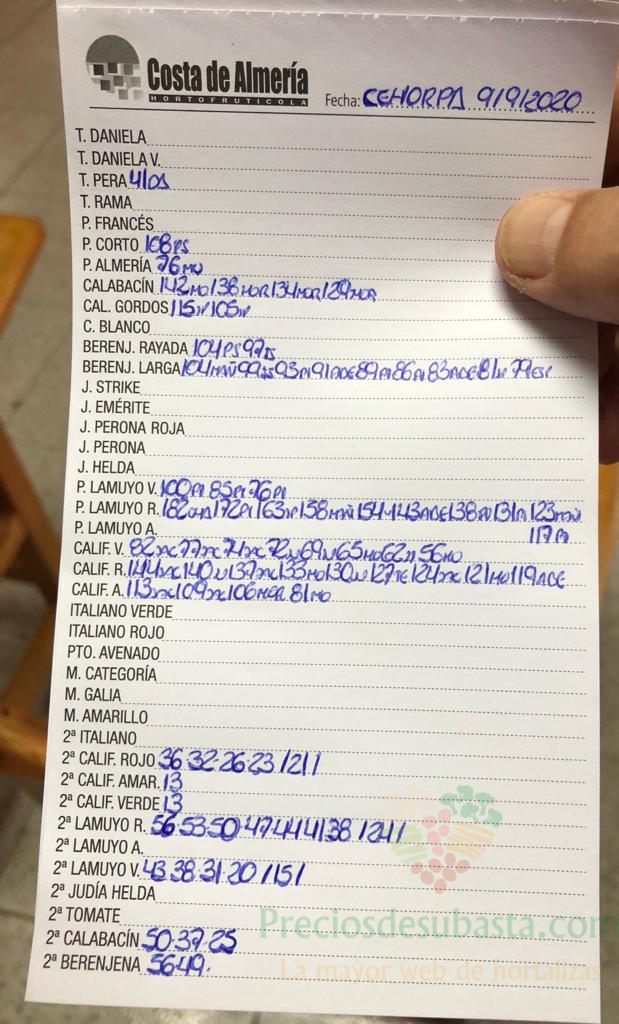 Costa de Almería
HORTOFRUTICOLA
Fecha: CEHORPA 9/9/2020
T. DANIELA
T. DANIELA V.
T. PERA 41OS
T. RAMA
P. FRANCÉS
P. CORTO 168PS
P. ALMERÍA 76MU
CALABACÍN 142MO 138MOR 134MOR 129MOR
CAL. GORDOS 115N 105N
C. BLANCO
BERENJ. RAYADA 104PS 97
BERENJ. LARGA 104MAÑ 99 93PI 91ACE 89PI 86PI 83ACE 81 79ESP
J. STRIKE
J. EMÉRITE
J. PERONA ROJA
J. PERONA
J. HELDA
P. LAMUYO V. 100PI 85PI 76PI
P. LAMUYO R. 182 172PI 163 158MAÑ 154-143ACE 138 131PI 123
P. LAMUYO A. 117PI
CALIF. V. 82 77 74 72N 69N 65MO 62 56MO
CALIF. R. 144 140N 137 133MO 130N 127TE 124 121MO 119ACE
CALIF. A. 113 109 106MER 81MO
ITALIANO VERDE
ITALIANO ROJO
PTO. AVENADO
M. CATEGORÍA
M. GALIA
M. AMARILLO
2ª ITALIANO
2ª CALIF. ROJO 36-32-26-23 /21/
2ª CALIF. AMAR. 13
2ª CALIF. VERDE 13
2ª LAMUYO R. 56-53-50-47-44-41-38 /24/
2ª LAMUYO A.
2ª LAMUYO V. 43-38-31-20 /15/
2ª JUDÍA HELDA
2ª TOMATE
2ª CALABACÍN 50-37-25
2ª BERENJENA 56-49.
Preciosdesubasta.com
La mayor web de hortalizas